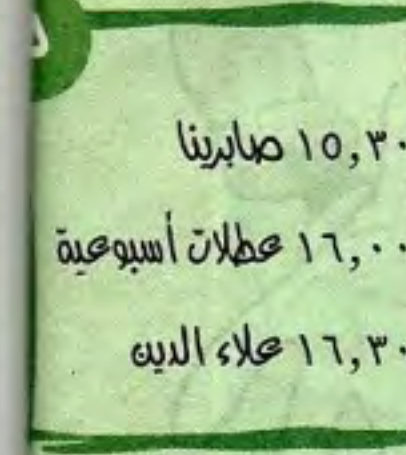 ١٥,٣٠ صابرينا
١٦,٠٠ عطلات أسبوعية
١٦,٣٠ علاء الدين